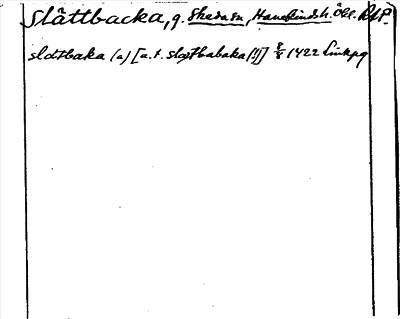 Slättbacka, g. Skeda sn, Hanekinds h. Ögl. RAP.
slatbaka (a) [a.t. slatbabaka (!)] 8/8 1422 Linkpg